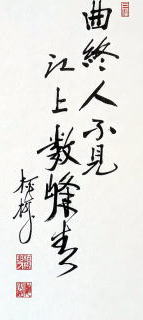 曲終人不見
江上數峰青